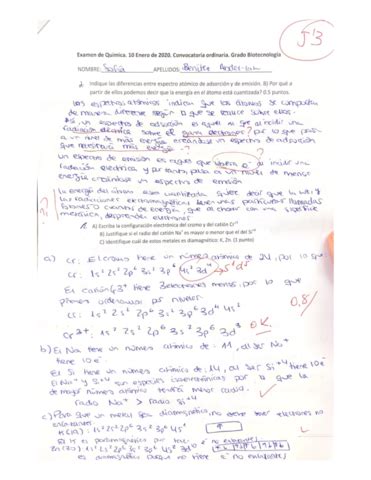 5'3
Examen de Química. 10 Enero de 2020. Convocatoria ordinaria. Grado Biotecnología
NOMBRE: Sofía APELLIDOS: Benítez
Indique las diferencias entre espectro atómico de adsorción y de emisión. B) Por qué a
partir de ellos podemos decir que la energía en el átomo está cuantizada? 0.5 puntos.
los espectros atómicos indican que los átomos se comportan
de manera diferente según a que se reduce sobre ellos.
Así, un espectro de adsorción es aquel en que al incidir una
radiación eléctrica sobre él gana electrones? por lo que pasa
a un nivel de más energía creándose un espectro de adsorción
que necesitará más energía.?
Un espectro de emisión es aquel que libera e- de incidir una
radiación eléctrica y por tanto, pasa a un nivel de menor
energía creándose un espectro de emisión
la energía del átomo está cuantizada quiere decir que la luz y
las radiaciones electromagnéticas llevan unas partículas llamadas
fotones o cuantos de energía, que al chocar con una superficie
metálica, desprenden electrones
A) Escriba la configuración electrónica del cromo y del catión Cr3+
B) Justifique si el radio del catión Na+ es mayor o menor que el del Si4+
C) Identifique cuál de estos metales es diamagnético: K, Zn (1 punto)
a) Cr: El cromo tiene un número atómico de 24, por lo que:
Cr: 1s2 2s2 2p6 3s2 3p6 4s2 3d4 s1 d5
Es catión 3+ tiene 3 electrones menos, por lo que
primero ordenamos por niveles:
Cr: 1s2 2s2 2p6 3s2 3p6 3d4 4s2
Cr3+: 1s2 2s2 2p6 3s2 3p6 3d3 O.K.
0,8/
b) El Na tiene un número atómico de: 11, al ser Na+
tiene 10 e-.
El Si tiene un número atómico de: 14, al ser Si+4 tiene 10 e-
El Na+ y Si+4 son especies isoelectrónicas por lo que la
de mayor número atómico tendrá menor radio.
radio Na+ > radio Si+4
c) Para que un metal sea diamagnético, no debe tener electrones no
K (19): 1s2 2s2 2p6 3s2 3p6 4s1
El K es paramagnético por tener e- no enlazantes
es diamagnético porque no tiene e- no enlazantes